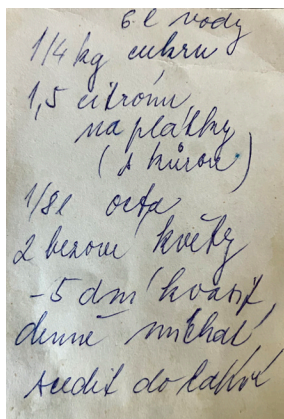 6 l vody
1/4 kg cukru
1,5 citrónu
na plátky
(s kůrou)
1/8 l octa
2 bezové květy
- 5 dní kvasit,
denně míchat,
scedit do lahví